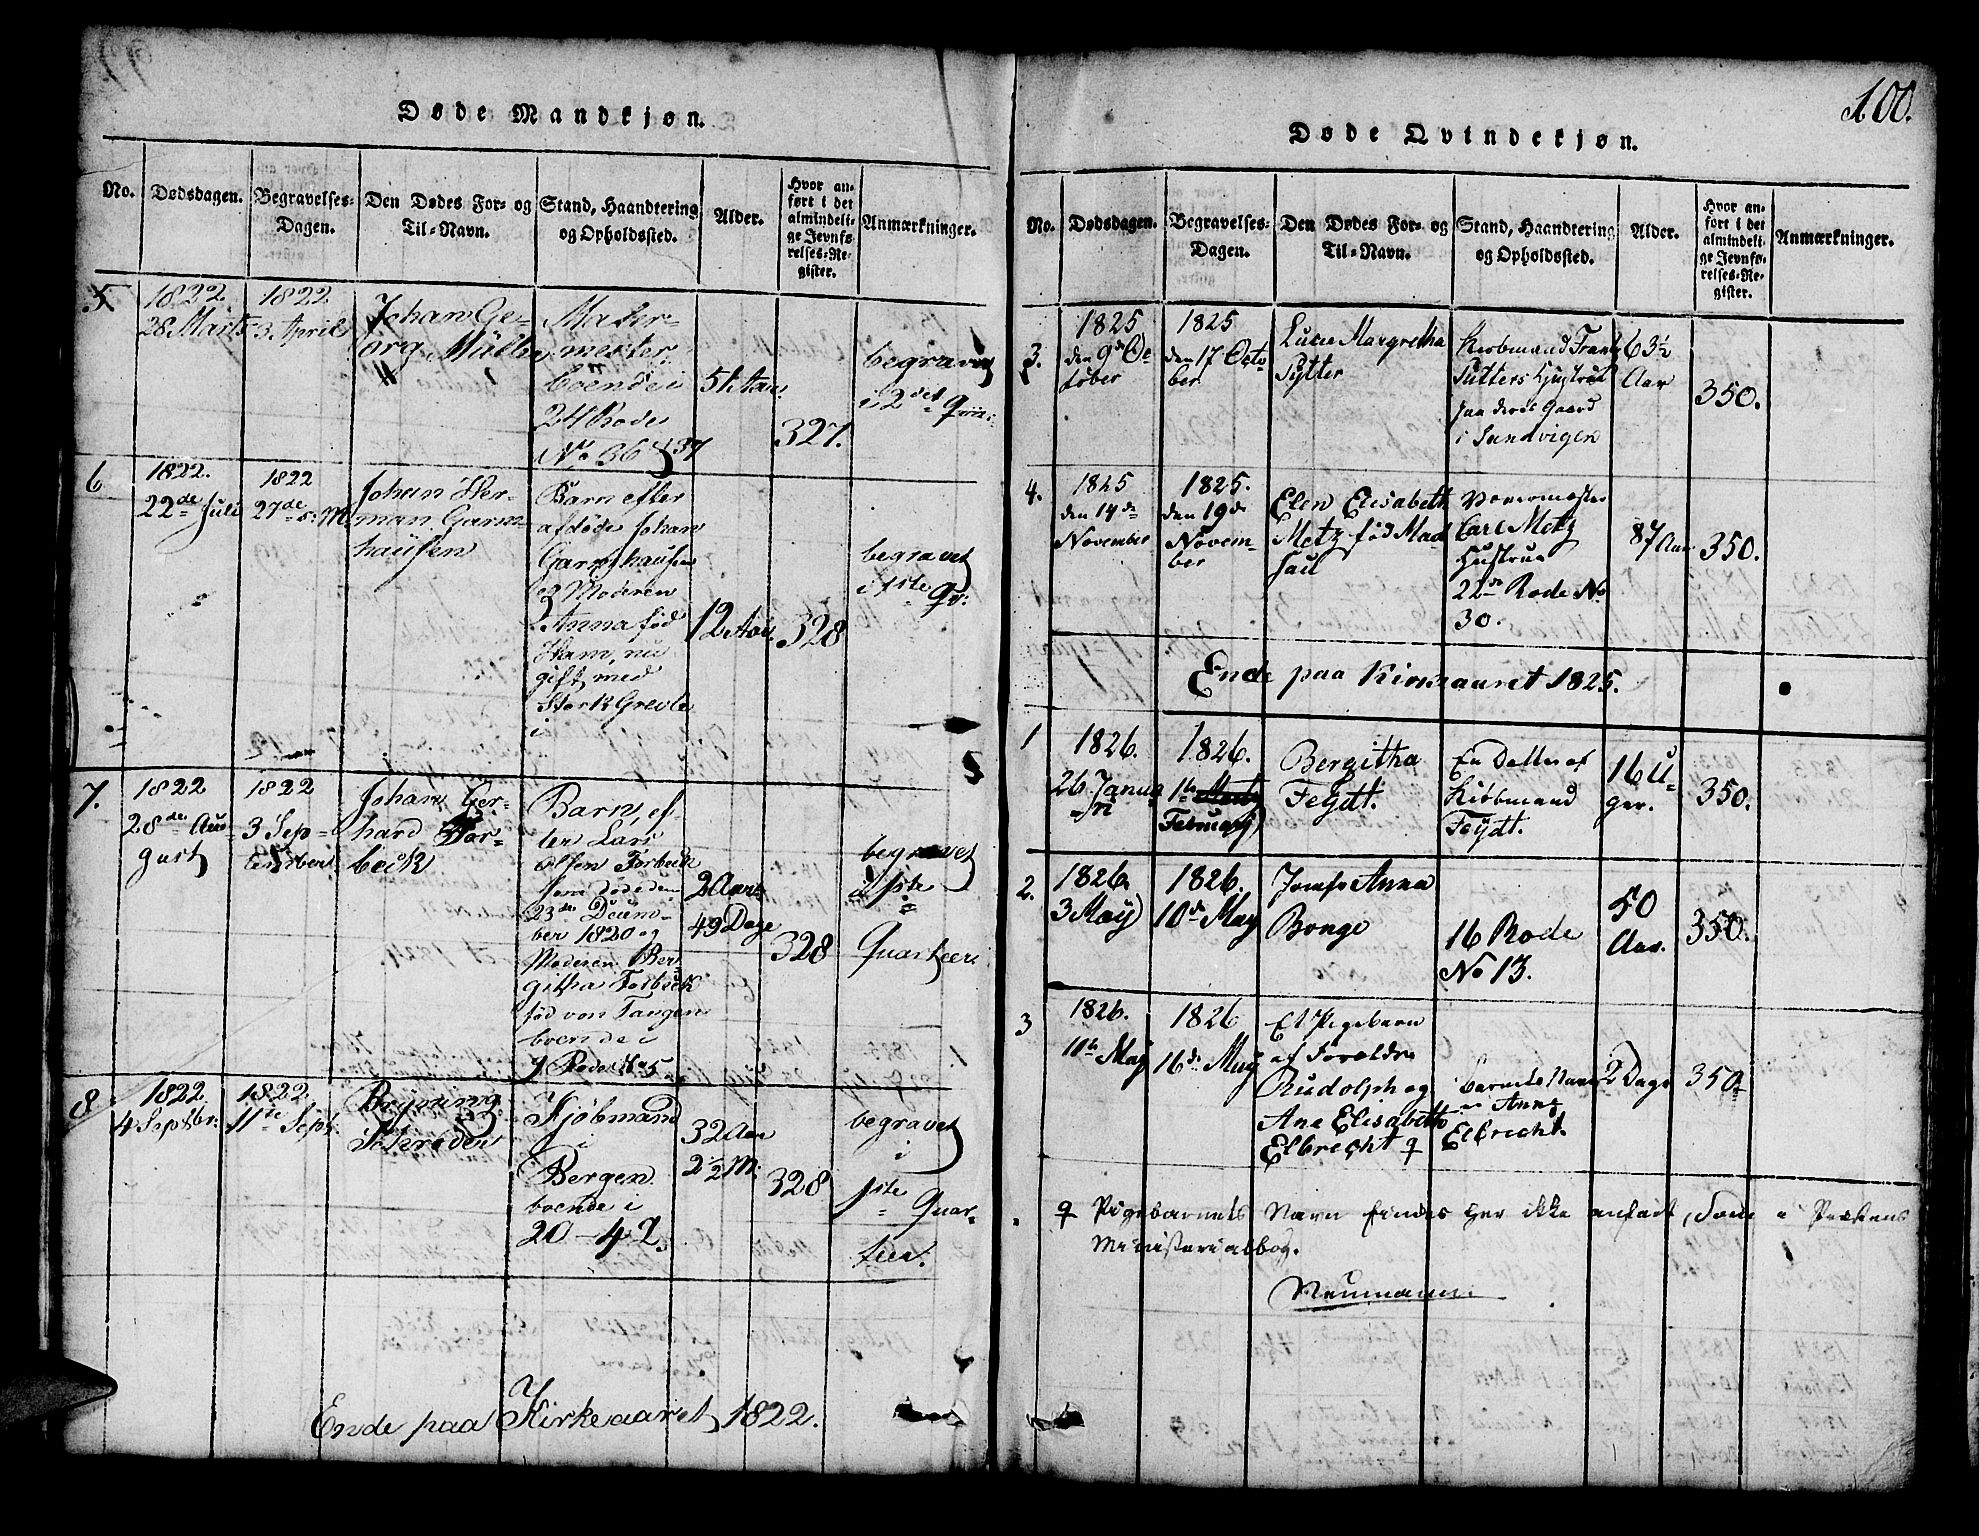 100.
Døde Mandkjøn.
No.
Dødsdagen.
Begravelses-
Dagen.
Den Dødes For- og
Til-Navn.
Stand, Haandtering
og Opholdssted.
Alder.
Hvor an-
ført i det
almindeli-
ge Jevnfø-
relses-Re-
gister.
Anmærkninger.
5
1822
28 Marts
1822
3. April
Johan Ge-
org Müller
Maler-
mester,
boende i
24 Rode
No 36 & 37
51 Aar.
327.
begravet
i 2det Qvar:
6
1822.
22de Juli
1822
27de s: M.
Johan Her-
man Garm
hausen
Barn efter
afdøde Johan
Garmhausen
og Moderen
Anna fød
Ham, nu
gift med
Stork Greve
i
12 Aar.
328
begravet
i 1ste Qv:
7.
1822
28de Au-
gust
1822
3 Sep-
tember
Johan Ger-
hard For-
beck
Barn, ef-
ter Lars
Olsen Forbeck
som døde den
23de Decem-
ber 1820 og
Moderen Ber-
githa Forbeck
fød von Tangen
boende i
9 Rode No 5
2 Aar
49 Dage
328
begravet
i 1ste
Quarteer.
8
1822
4 Septbr.
1822
11te Sept.
Kjöbmand
i
Bergen
boende i
20 - 42.
32 Aar
2½ M.
328
begravet
i
1ste Quar-
teer.
Ende paa Kirkeaaret 1822.
Døde Qvindekjøn.
No.
Dødsdagen.
Begravelses-
Dagen.
Den Dødes For- og
Til-Navn.
Stand, Haandtering
og Opholdssted.
Alder.
Hvor an-
ført i det
almindeli-
ge Jevnfø-
relses-Re-
gister.
Anmærkninger.
3.
1825
den 9de Oc
tober
1825
den 17 Octo
ber
Lucie Margretha
Sytter
Kiobmand Frantz
Sutters Hustrue
paa deres Gaard
i Sandvigen
63½
Aar
350.
4.
1825
den 14de
November
1825.
den 19de
Novem-
ber
Elen Elisabeth
Metz fød Mad
sen
Carl Metz
Hustrue
22de Rode No
30.
87 Aar
350.
Ende paa Kirkeaaret 1825.
1
1826.
26 Janua
ri
1826.
1te
February
Bergitha
Feydt.
En Datter af
Kiöbmand
Feydt.
16 U-
ger.
350.
2.
1826.
3 May
1826.
10de May
Jomfr Anna
Bonge
16 Rode
No 13.
50
Aar.
350.
3
1826.
11te May
1826
16de May
Et Pigebarn
af Foreldre
Rudolph og
Ane Elisabeth
Elbrecht ♀
barnets Navn
Anna
Elbrecht.
2 Dage
350
♀ Pigebarnets Navn findes her ikke anført, som i Præstens
Ministerialbog.
Neumann.